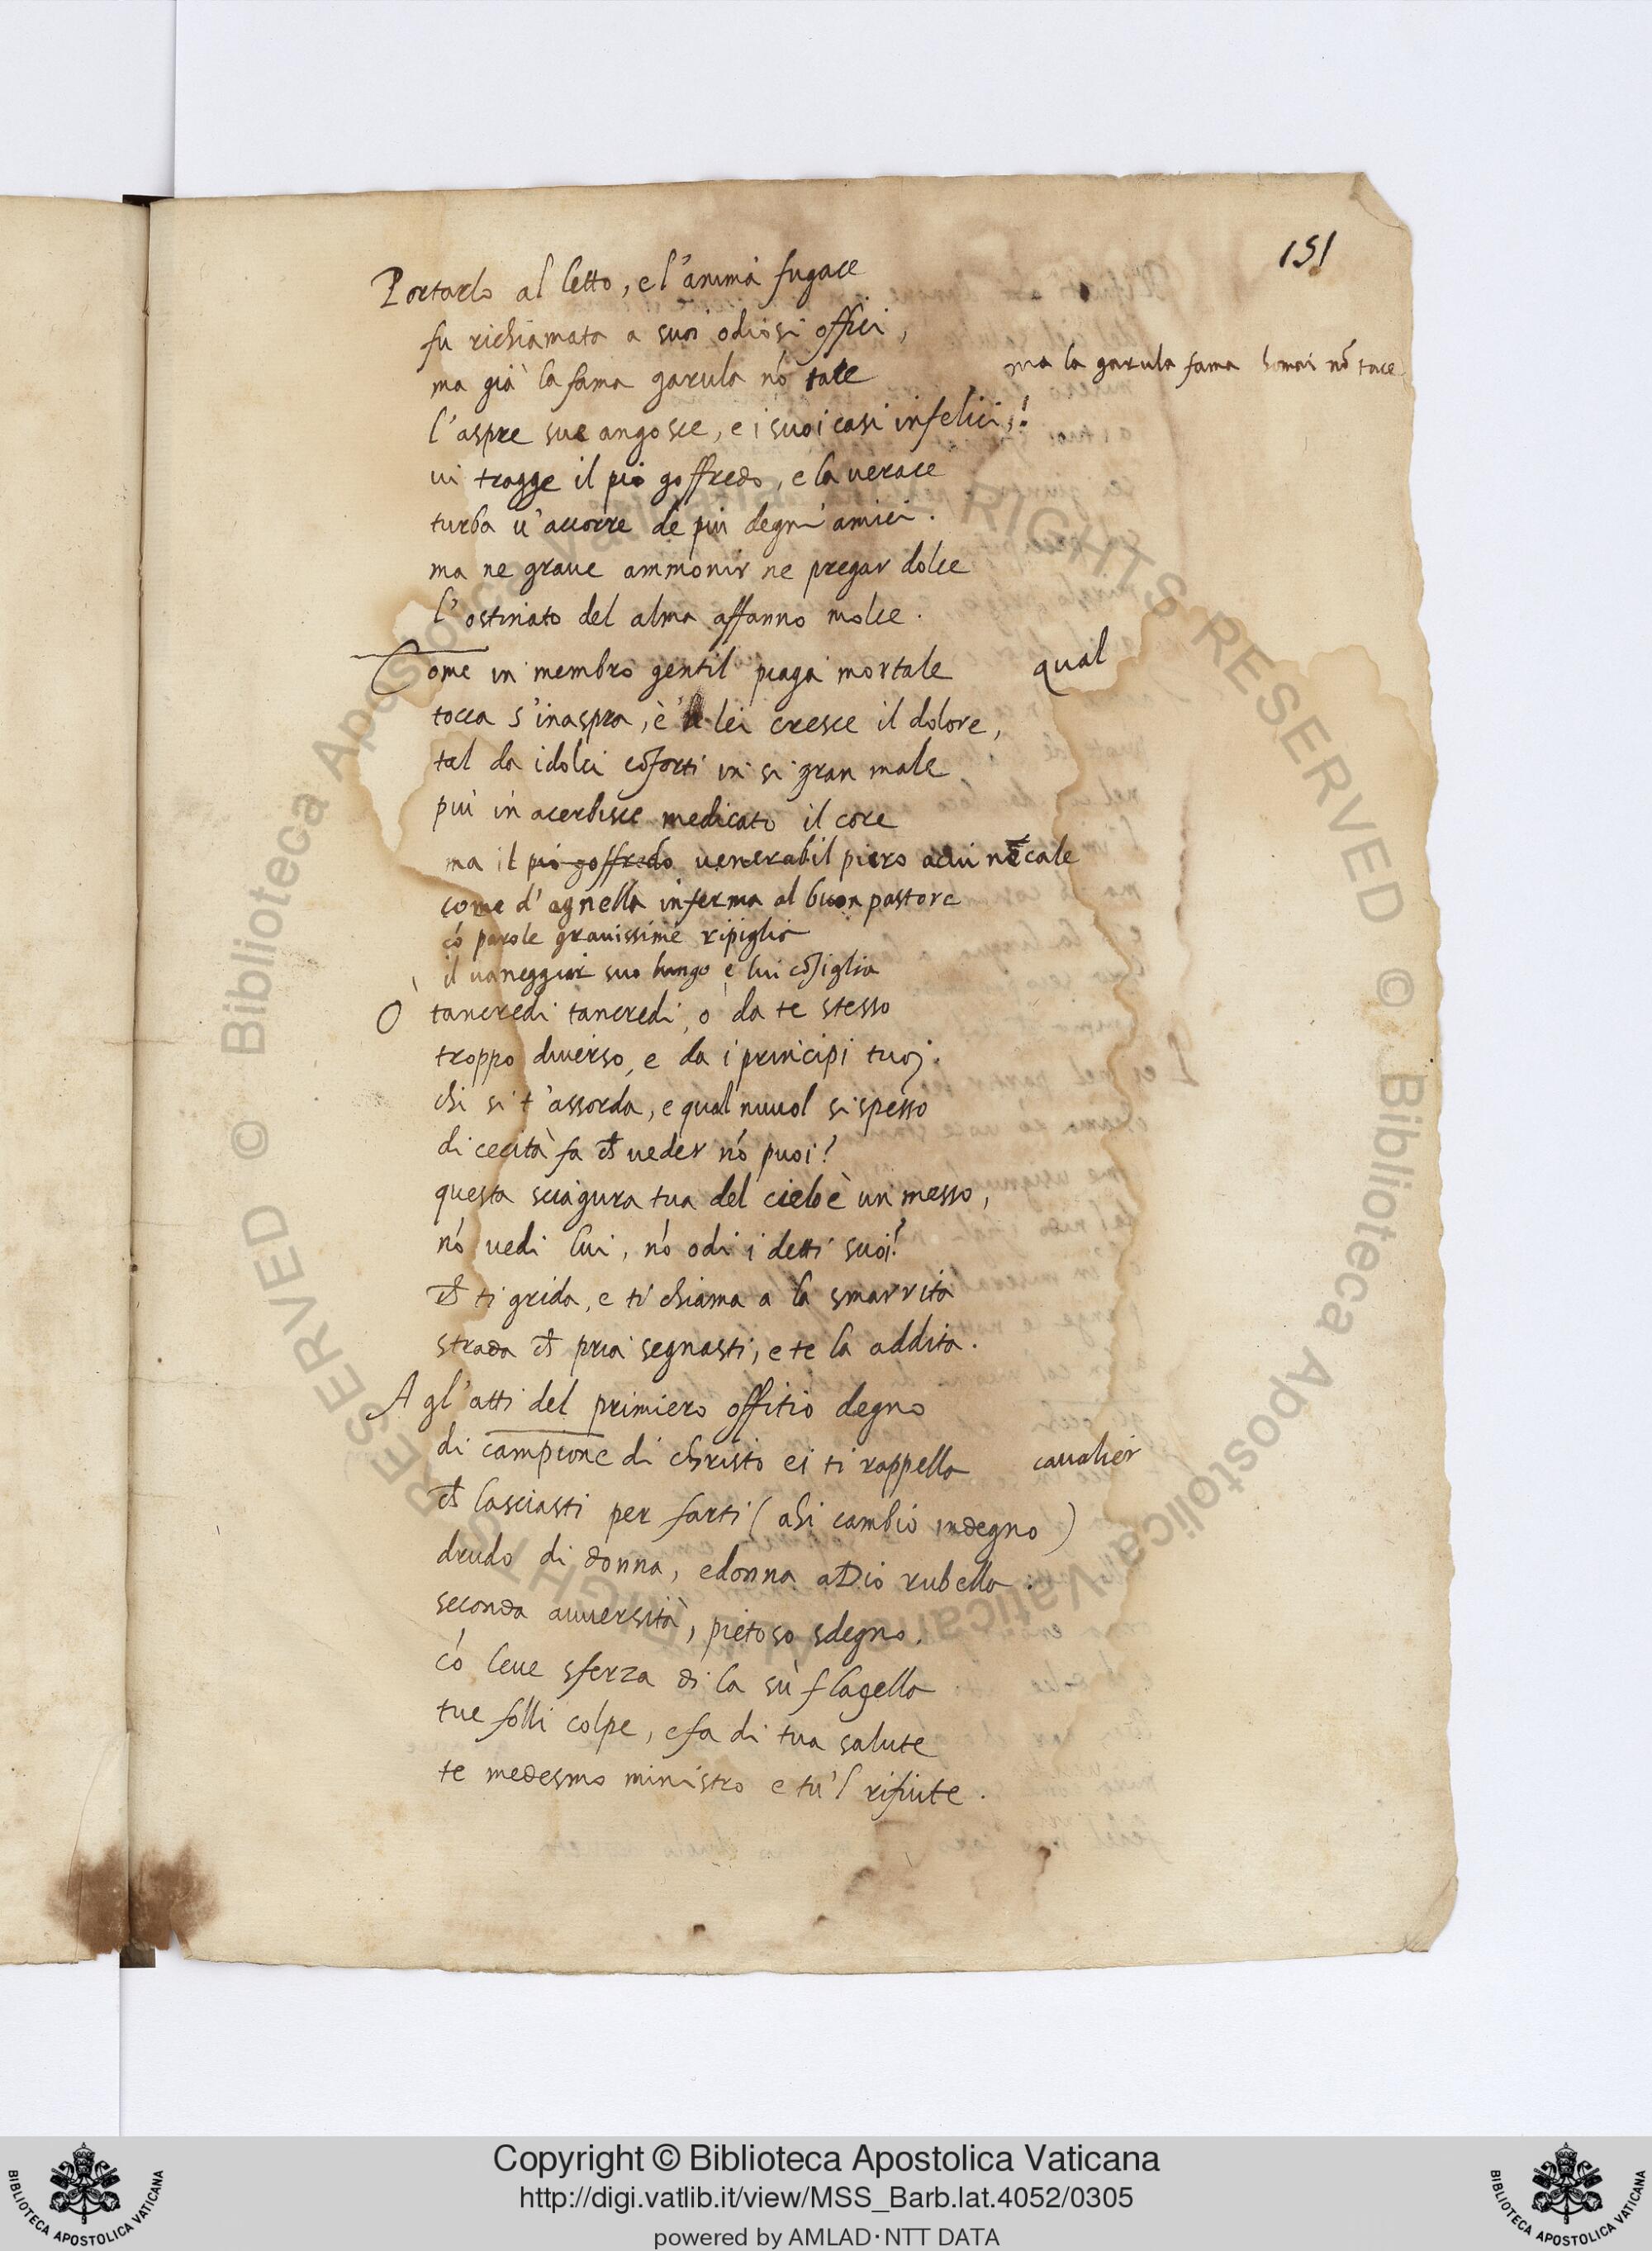 151
Portarlo al letto, e l'anima fugace
fu richiamata a suoi odiosi offici,
ma già la fama garula nó tace
ma la garula fama homai nõ tace
l'aspre sue angosce, e i suoi casi infelici,!
ui tragge il pio goffredo, e la uerace
turba u'accorre de piu degni amici.
ma ne graue ammonir ne pregar dolce
l'ostinato del alma affanno molce.
Come in membro gentil piaga mortale
qual
tocca s'inaspra, è 'n lei cresce il dolore,
tal da i dolci cõforti in si gran male
piu in acerbisce medicato il core
ma il pio goffredo uenerabil piero a cui nẽ cale
come d'agnella inferma al buon pastore
có parole grauissime ripiglia
il uaneggiar suo lungo e lui cõsiglia
Ò tancredi tancredi, o da te stesso
troppo diuerso, e da i principi tuoj.
chi si t'assorda, e qual nuuol si spesso
di cecità fa ch̃ ueder nó puoi?
questa sciagura tua del cielo è un messo,
nó uedi lui, nó odi i detti suoi?
ch̃ ti grida, e ti chiama a la smarrita
strada ch̃ pria segnasti, e te la addita.
A gl'atti del primiero offitio degno
di campione di christo ei ti rappella
caualier
ch̃ lasciasti per farti (ahi cambio indegno)
drudo di donna, e donna a Dio rubella.
seconda auuersità, pietoso sdegno.
có leue sferza di la sù flagella
tue folli colpe, e fa di tua salute
te medesmo ministro e tu 'l rifiute.
© Biblioteca Apostolica Vaticana ALL RIGHTS RESERVED © Biblioteca Apostolica Vaticana ALL RIGHTS RESERVED
BIBLIOTECA APOSTOLICA VATICANA
Copyright © Biblioteca Apostolica Vaticana
http://digi.vatlib.it/view/MSS_Barb.lat.4052/0305
powered by AMLAD·NTT DATA
BIBLIOTECA APOSTOLICA VATICANA